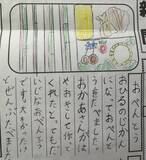 おべんとう
おひるのじかん
になっておべんと
うをたべました。
おかあさんがは
やおきして作って
くれた、とてもだ
いじなおべんとう
です。大すき
ぜんぶたべま